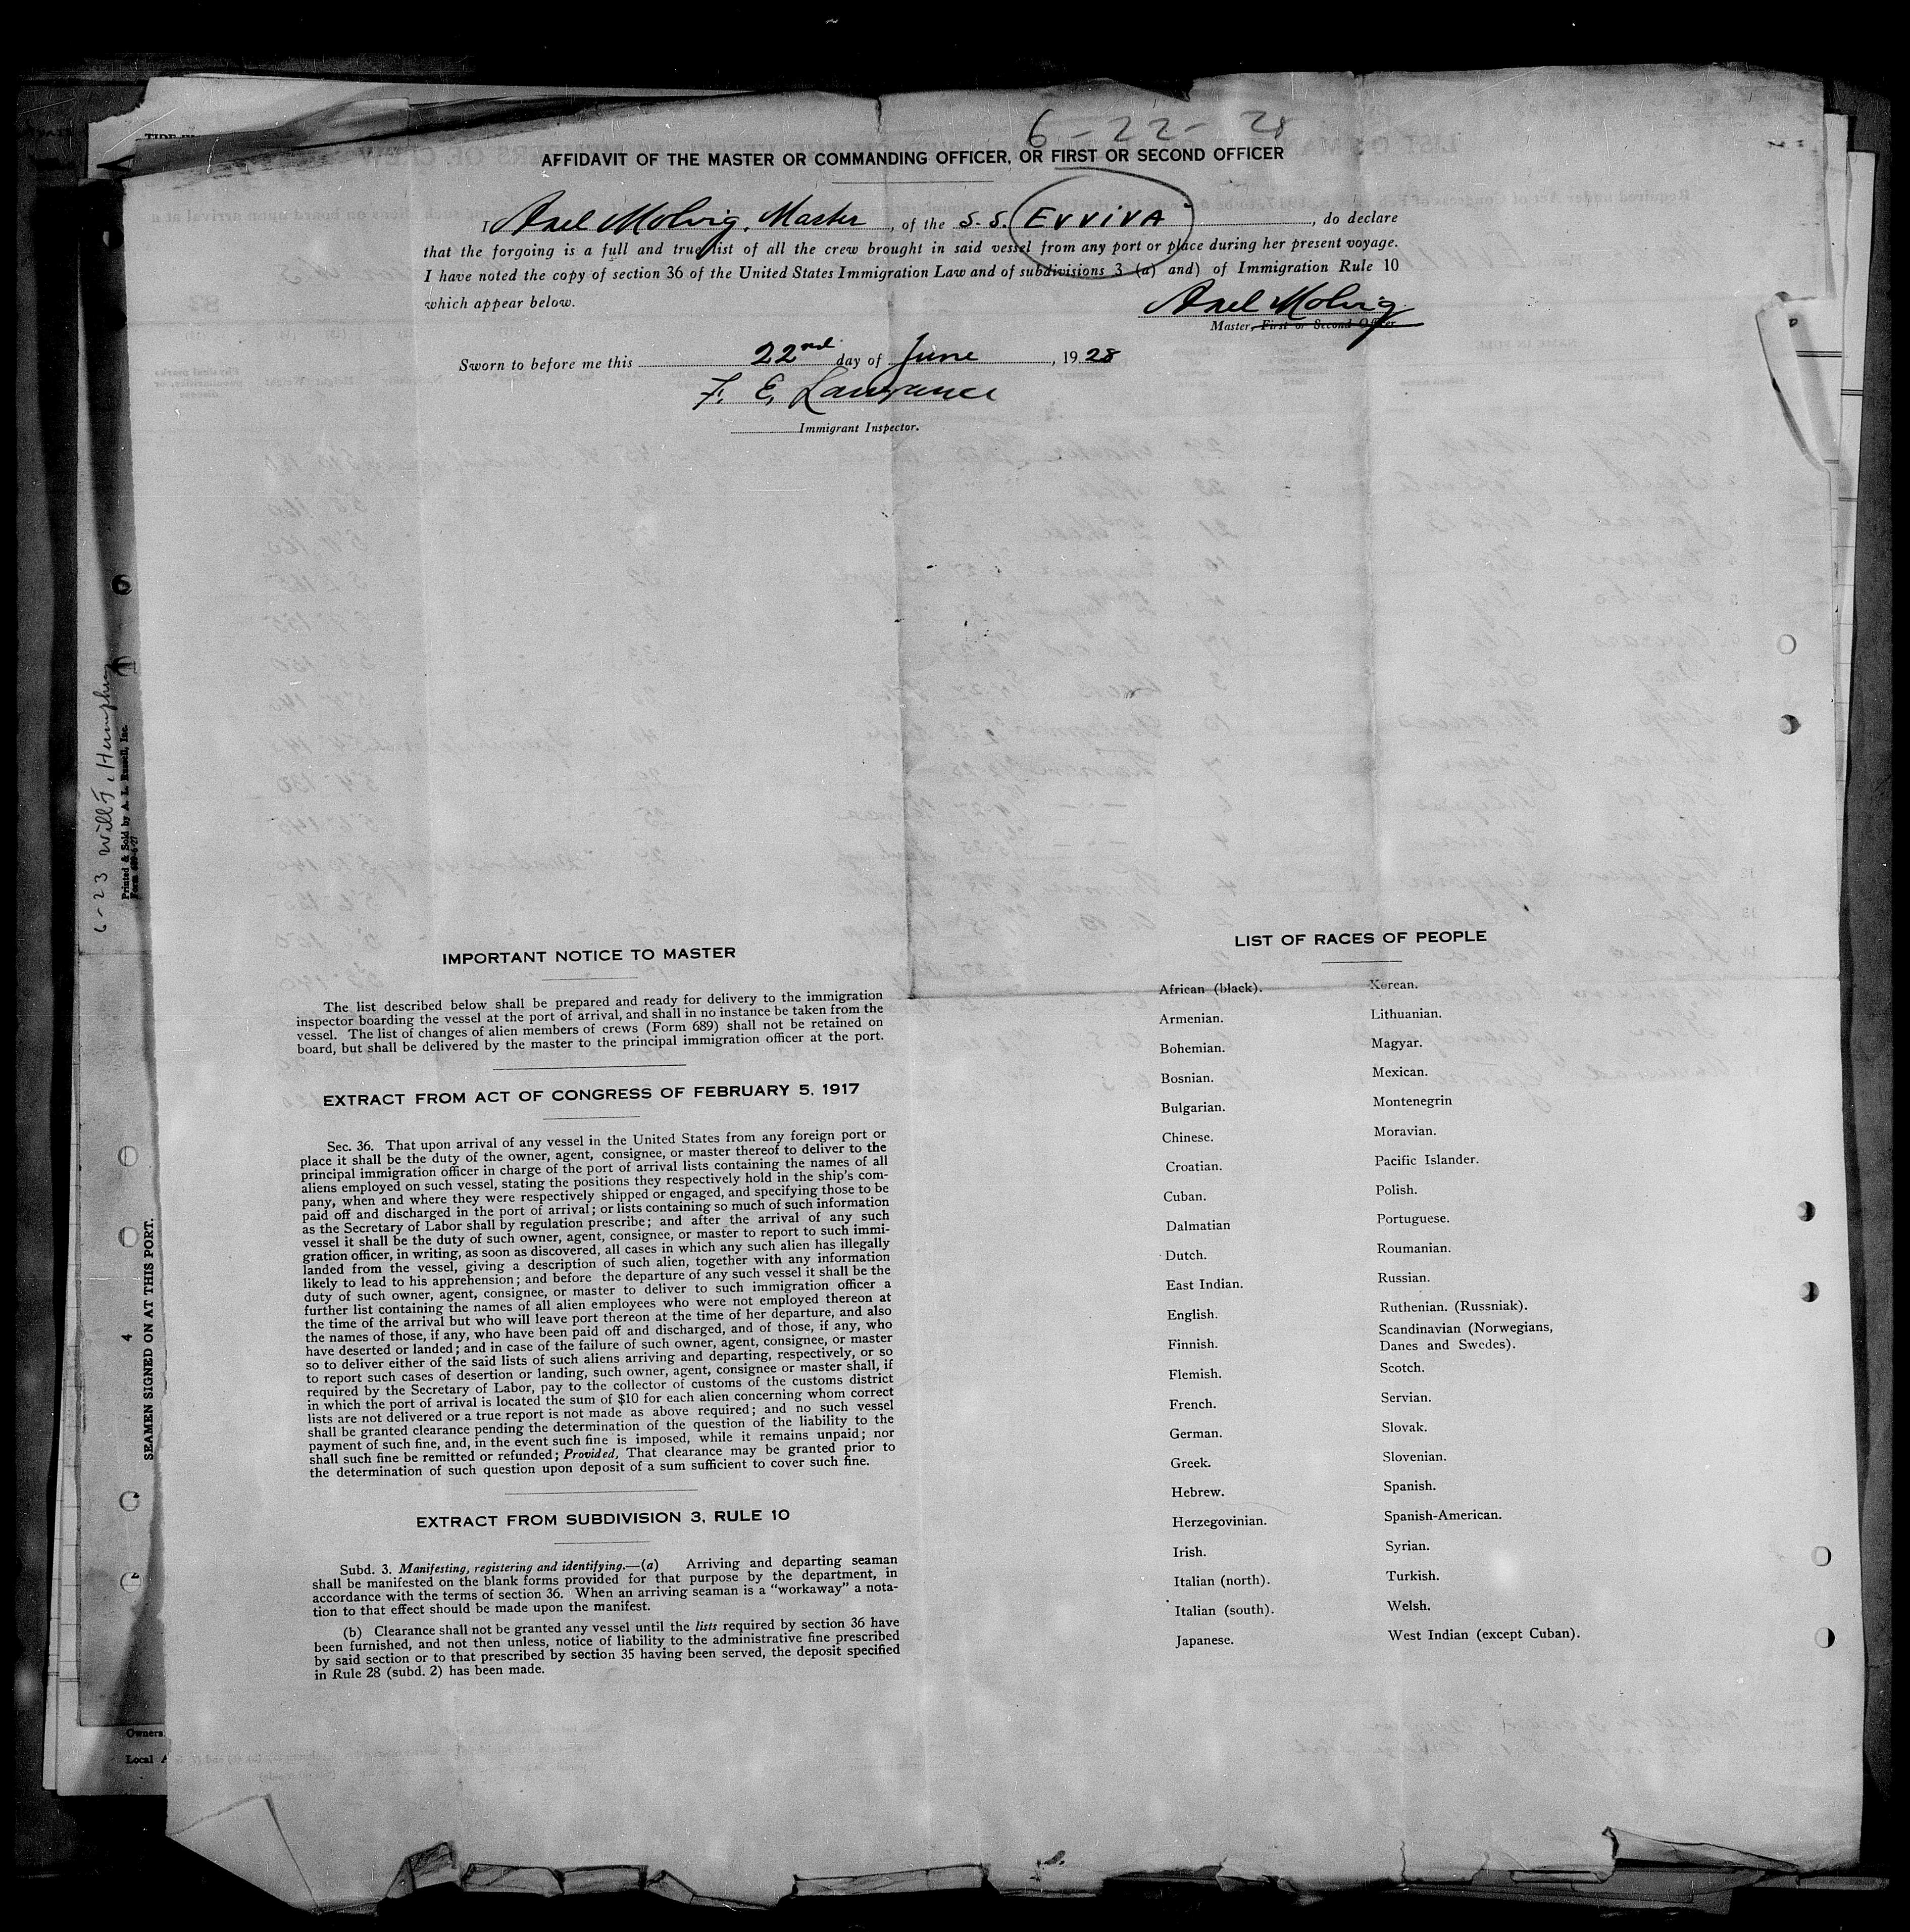 6-22-28
AFFIDAVIT OF THE MASTER OR COMMANDING OFFICER, OR FIRST OR SECOND OFFICER
I Axel Molvig, Master, of the S.S. EVVIVA, do declare
that the forgoing is a full and true list of all the crew brought in said vessel from any port or place during her present voyage.
I have noted the copy of section 36 of the United States Immigration Law and of subdivisions 3 (a) and) of Immigration Rule 10
which appear below.
Axel Molvig
Master, First or Second Officer
Sworn to before me this 22nd day of June, 1928
F. E. Lawrance
Immigrant Inspector.
IMPORTANT NOTICE TO MASTER
The list described below shall be prepared and ready for delivery to the immigration
inspector boarding the vessel at the port of arrival, and shall in no instance be taken from the
vessel. The list of changes of alien members of crews (Form 689) shall not be retained on
board, but shall be delivered by the master to the principal immigration officer at the port.
EXTRACT FROM ACT OF CONGRESS OF FEBRUARY 5, 1917
Sec. 36. That upon arrival of any vessel in the United States from any foreign port or
place it shall be the duty of the owner, agent, consignee, or master thereof to deliver to the
principal immigration officer in charge of the port of arrival lists containing the names of all
aliens employed on such vessel, stating the positions they respectively hold in the ship's com-
pany, when and where they were respectively shipped or engaged, and specifying those to be
paid off and discharged in the port of arrival; or lists containing so much of such information
as the Secretary of Labor shall by regulation prescribe; and after the arrival of any such
vessel it shall be the duty of such owner, agent, consignee, or master to report to such immi-
gration officer, in writing, as soon as discovered, all cases in which any such alien has illegally
landed from the vessel, giving a description of such alien, together with any information
likely to lead to his apprehension; and before the departure of any such vessel it shall be the
duty of such owner, agent, consignee, or master to deliver to such immigration officer a
further list containing the names of all alien employees who were not employed thereon at
the time of the arrival but who will leave port thereon at the time of her departure, and also
the names of those, if any, who have been paid off and discharged, and of those, if any, who
have deserted or landed; and in case of the failure of such owner, agent, consignee, or master
so to deliver either of the said lists of such aliens arriving and departing, respectively, or so
to report such cases of desertion or landing, such owner, agent, consignee or master shall, if
required by the Secretary of Labor, pay to the collector of customs of the customs district
in which the port of arrival is located the sum of $10 for each alien concerning whom correct
lists are not delivered or a true report is not made as above required; and no such vessel
shall be granted clearance pending the determination of the question of the liability to the
payment of such fine, and, in the event such fine is imposed, while it remains unpaid; nor
shall such fine be remitted or refunded; Provided, That clearance may be granted prior to
the determination of such question upon deposit of a sum sufficient to cover such fine.
EXTRACT FROM SUBDIVISION 3, RULE 10
Subd. 3. Manifesting, registering and identifying.—(a) Arriving and departing seaman
shall be manifested on the blank forms provided for that purpose by the department, in
accordance with the terms of section 36. When an arriving seaman is a "workaway" a nota-
tion to that effect should be made upon the manifest.
(b) Clearance shall not be granted any vessel until the lists required by section 36 have
been furnished, and not then unless, notice of liability to the administrative fine prescribed
by said section or to that prescribed by section 35 having been served, the deposit specified
in Rule 28 (subd. 2) has been made.
LIST OF RACES OF PEOPLE
African (black).
Armenian.
Bohemian.
Bosnian.
Bulgarian.
Chinese.
Croatian.
Cuban.
Dalmatian
Dutch.
East Indian.
English.
Finnish.
Flemish.
French.
German.
Greek.
Hebrew.
Herzegovinian.
Irish.
Italian (north).
Italian (south).
Japanese.
Korean.
Lithuanian.
Magyar.
Mexican.
Montenegrin
Moravian.
Pacific Islander.
Polish.
Portuguese.
Roumanian.
Russian.
Ruthenian. (Russniak).
Scandinavian (Norwegians,
Danes and Swedes).
Scotch.
Servian.
Slovak.
Slovenian.
Spanish.
Spanish-American.
Syrian.
Turkish.
Welsh.
West Indian (except Cuban).
6-23 Will T. Humphrey
Printed & Sold by A. L. Russell, Inc.
Form 689-6-27
4
SEAMEN SIGNED ON AT THIS PORT.
Owners
Local A